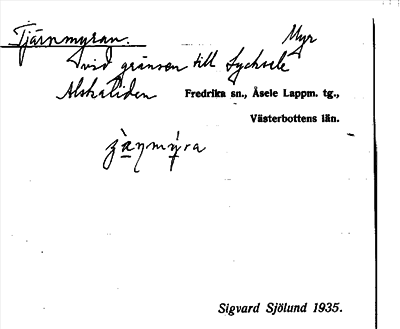 Tjärnmyran. Myr
vid gränsen till Lycksele
Alskaliden Fredrika sn., Åsele Lappm. tg.,
Västerbottens län.
Sigvard Sjölund 1935.